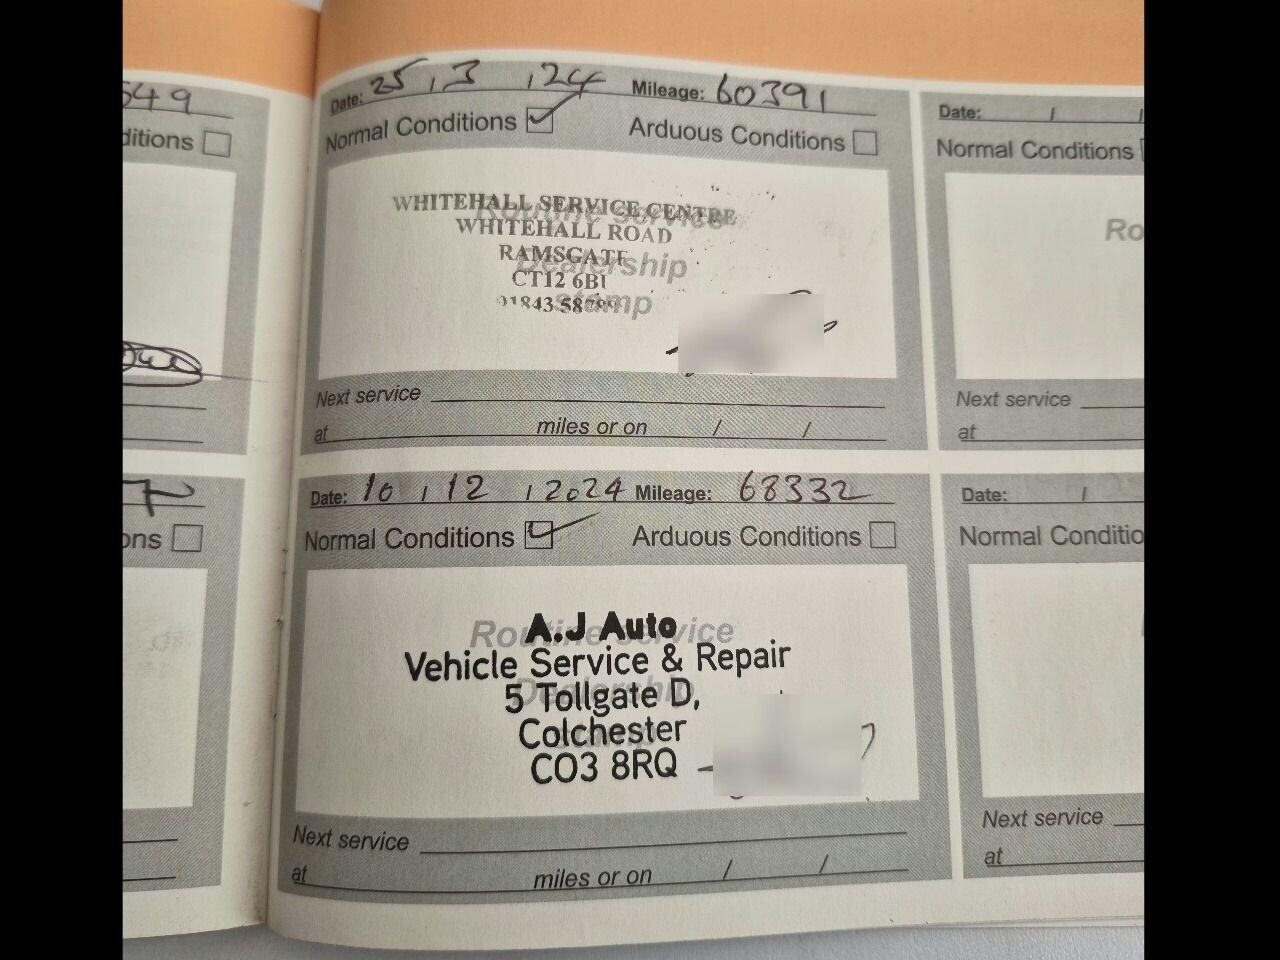 549
ditions
ons
Date: 25 / 3 / 24 Mileage: 60391
Normal Conditions Arduous Conditions
Routine service
Dealership
stamp
WHITEHALL SERVICE CENTRE
WHITEHALL ROAD
RAMSGATE
CT12 6BU
Next service
at miles or on / /
Date: 10 / 12 / 2024 Mileage: 68332
Normal Conditions Arduous Conditions
Routine service
Dealership
A.J Auto
Vehicle Service & Repair
5 Tollgate D,
Colchester
CO3 8RQ
Next service
at miles or on / /
Date: / /
Normal Conditions
Ro
Next service
at
Date: /
Normal Conditio
Next service
at